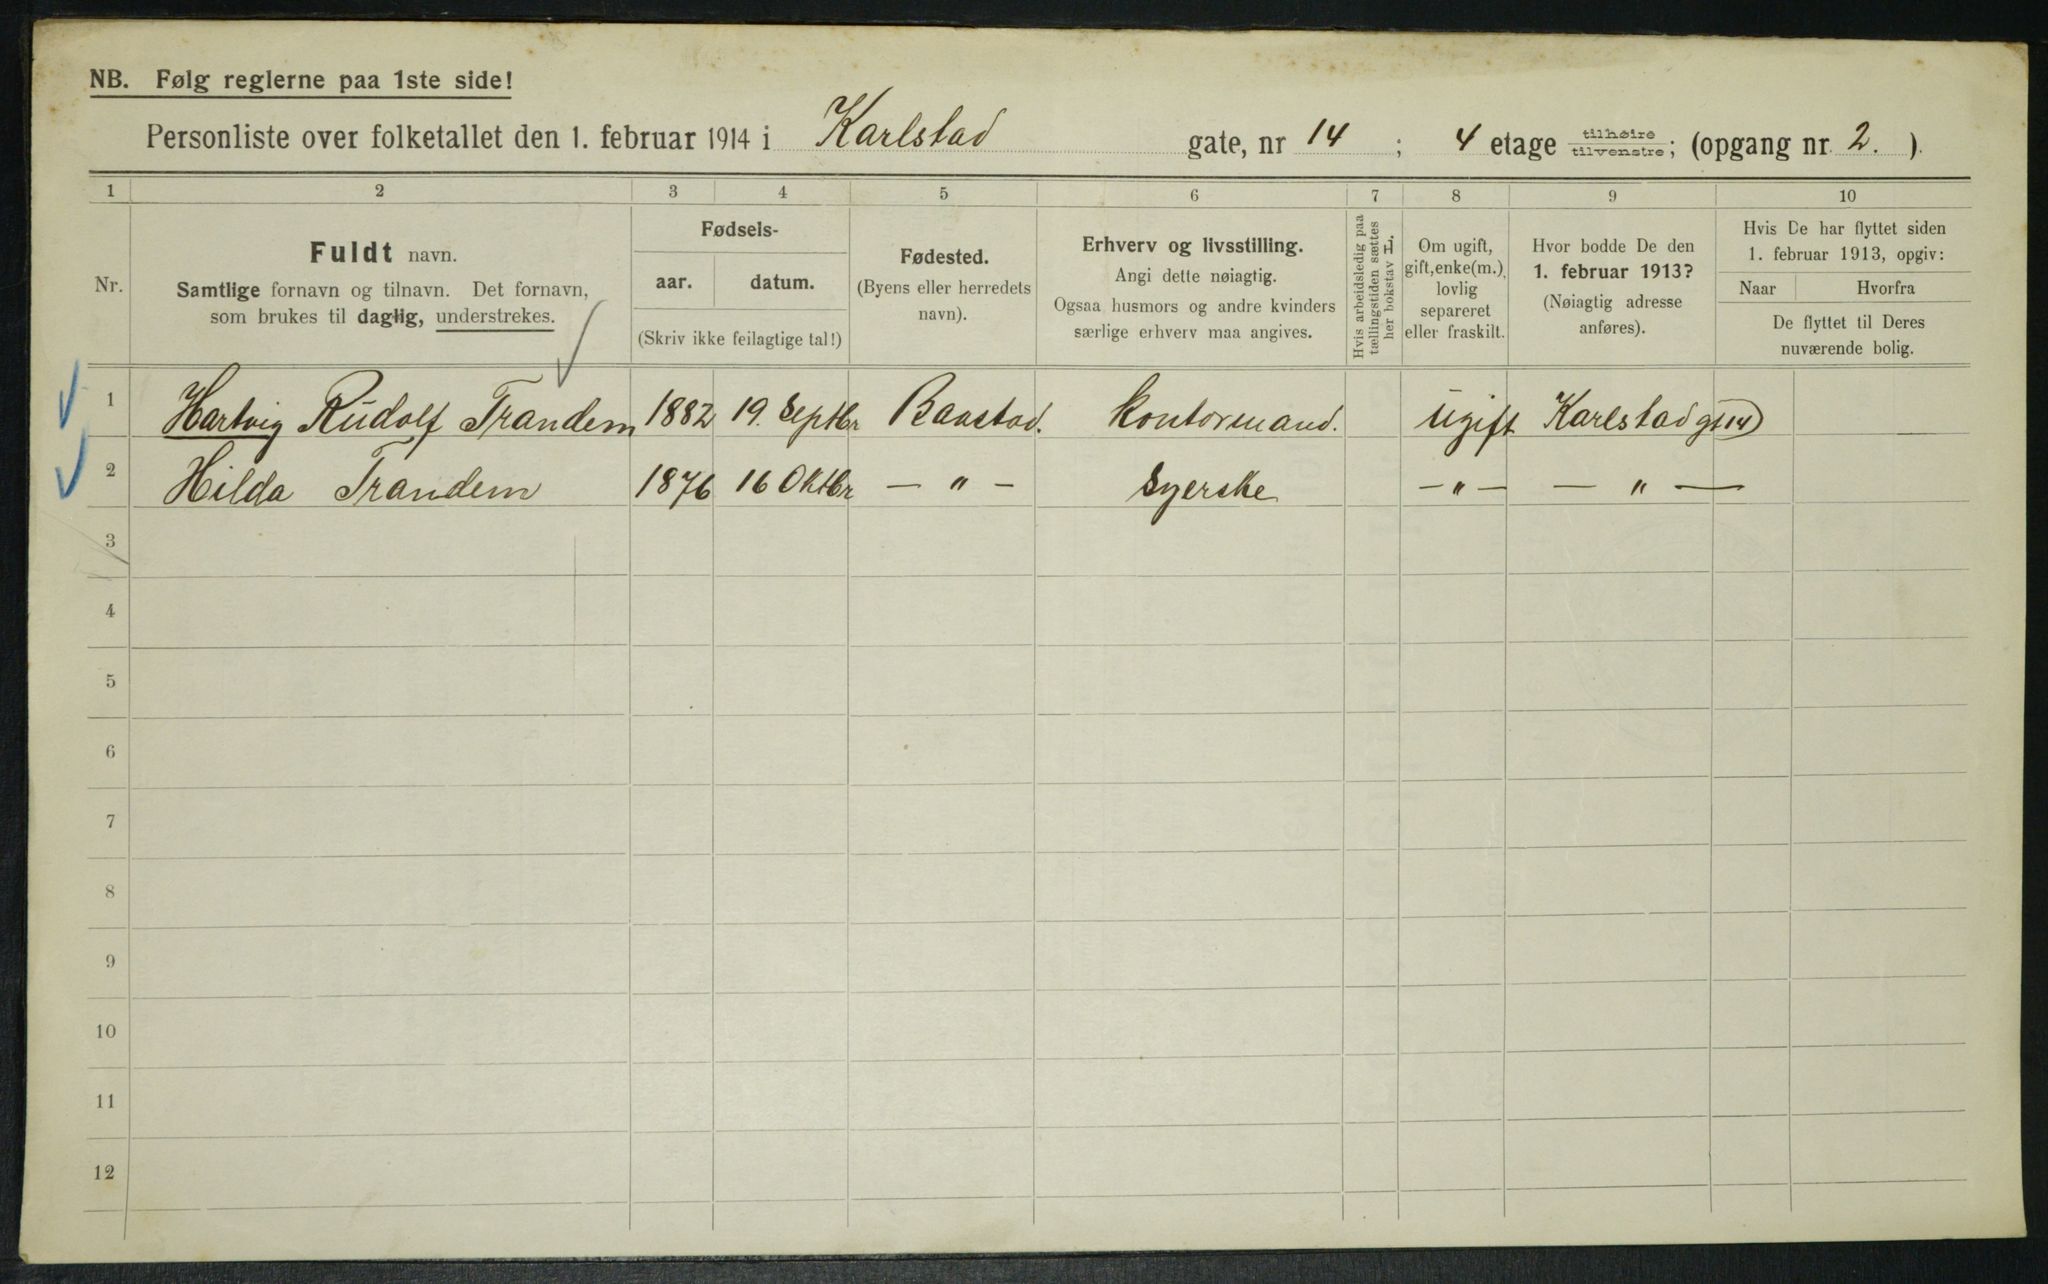 NB. Følg reglerne paa 1ste side!
Personliste over folketallet den 1. februar 1914 i Karlstad gate, nr 14 ; 4 etage tilhøire tilvenstre; (opgang nr 2. ).
1 2 3 4 5 6 7 8 9 10
Nr.
Fuldt navn.
Samtlige fornavn og tilnavn. Det fornavn,
som brukes til daglig, understrekes.
Fødsels-
aar. datum.
(Skriv ikke feilagtige tal!)
Fødested.
(Byens eller herredets
navn).
Erhverv og livsstilling.
Angi dette nøiagtig.
Ogsaa husmors og andre kvinders
særlige erhverv maa angives.
Hvis arbeidsledig paa
tællingstiden sættes
her bokstav H.
Om ugift,
gift, enke(m.),
lovlig
separeret
eller fraskilt.
Hvor bodde De den
1. februar 1913?
(Nøiagtig adresse
anføres).
Hvis De har flyttet siden
1. februar 1913, opgiv:
Naar Hvorfra
De flyttet til Deres
nuværende bolig.
1 Hartvig Rudolf Trandem 1882 19. Septbr Baastad. Kontormand. Ugift Karlstadgt 14
2 Hilda Trandem 1876 16 Oktbr — " — Syerske — " — — " —
3
4
5
6
7
8
9
10
11
12